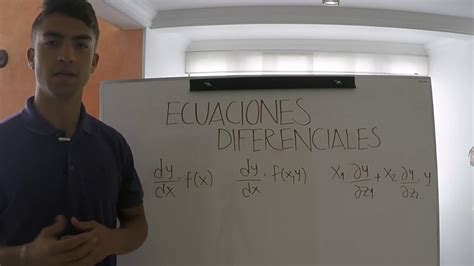 ECUACIONES
DIFERENCIALES
dy/dx = f(x)   dy/dx = f(x,y)   x₁ ∂y/∂z₁ + x₂ ∂y/∂z₂ y